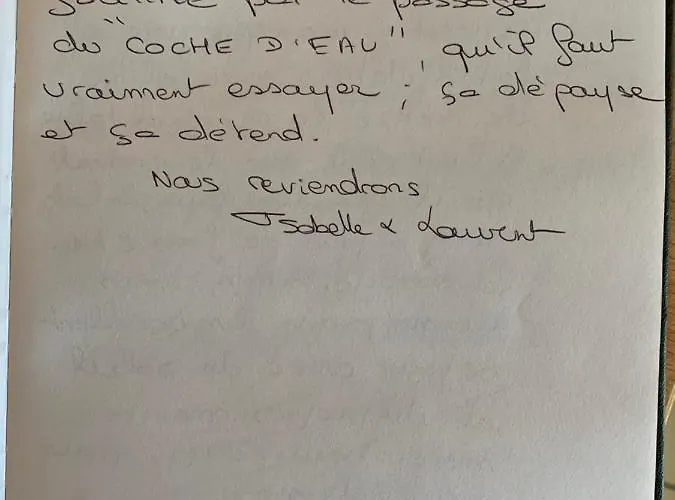 par le passage
du "COCHE D'EAU", qu'il faut
vraiment essayer ; ça dépayse
et ça détend.
Nous reviendrons
Isabelle & Laurent